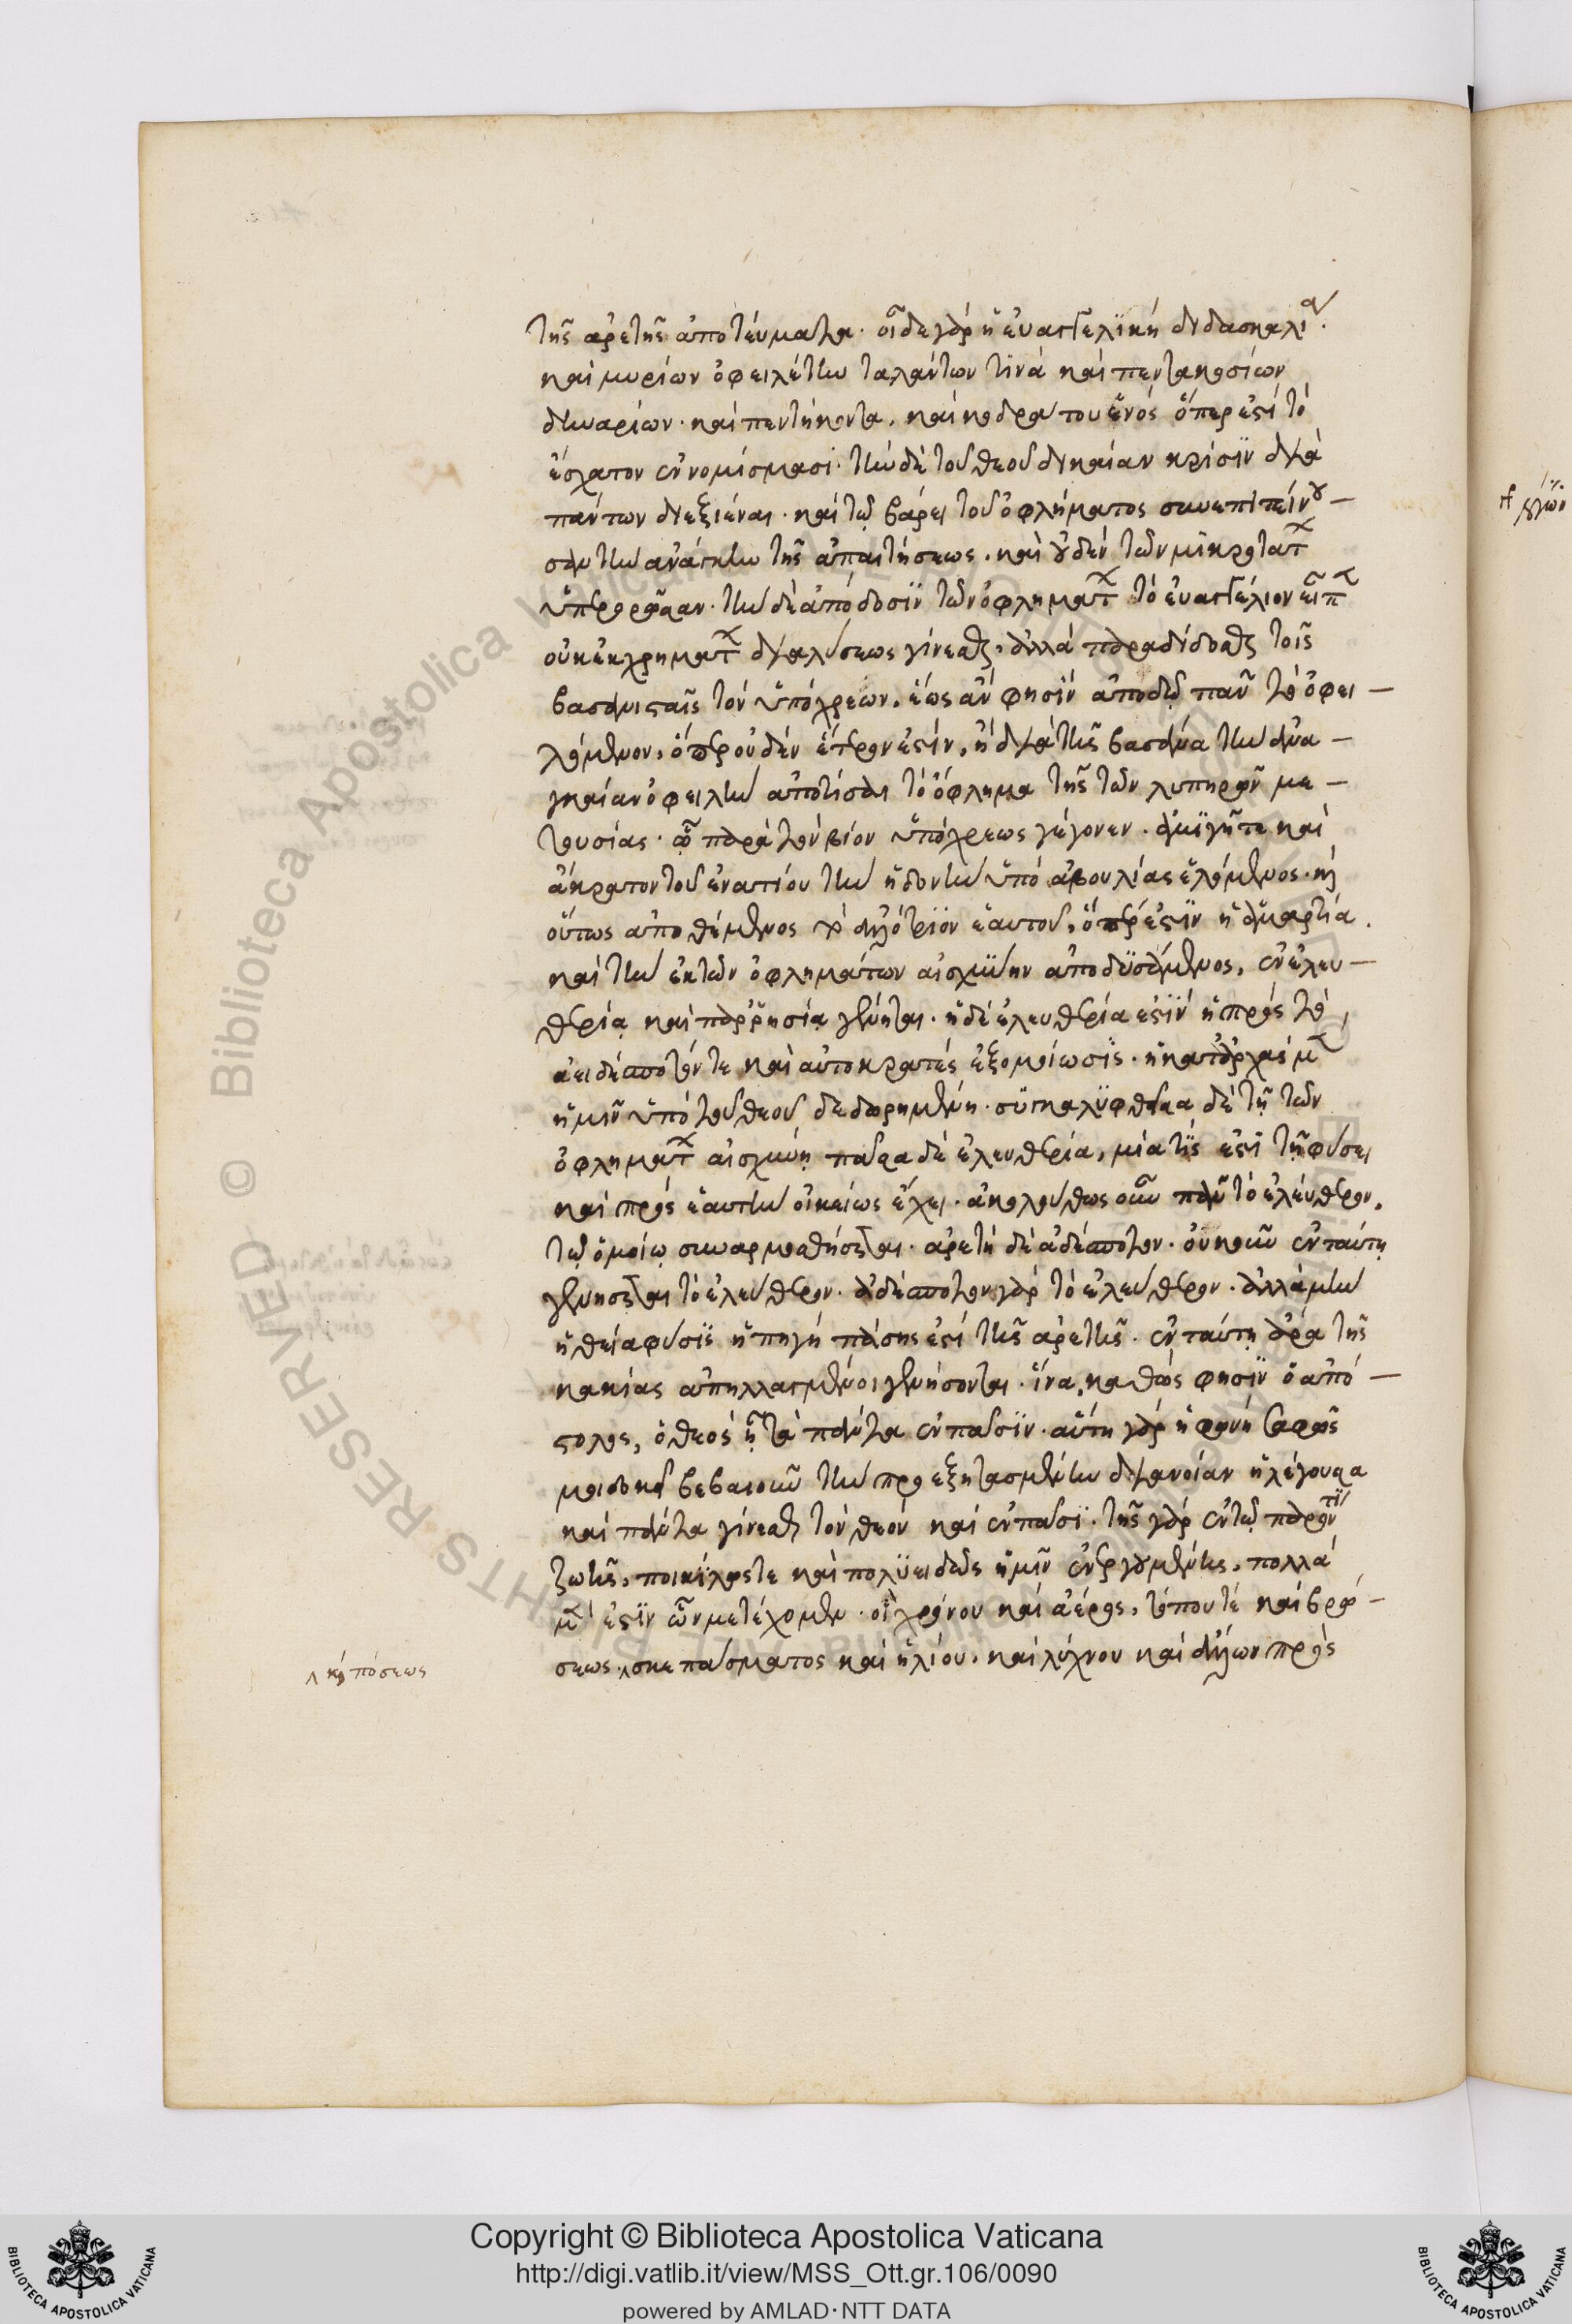 τῆς ἀρετῆς ἀποτεύματα· οἶδε γὰρ ἡ εὐαγγελϊκὴ διδασκαλία·
καὶ μυρίων ὀφειλέτην ταλάντων τϊνὰ καὶ πεντακοσίων
δηναρίων· καὶ πεντήκοντα, καὶ κοδράτου ἑνός ὅπερ ἐστὶ τὸ
ἔσχατον ἐν νομίσμασι· τὴν δὲ τοῦ θεοῦ δικαίαν κρίσϊν διὰ
πάντων διεξιέναι· καὶ τῷ βάρει τοῦ ὀφλήματος συνεπιτείνου–
σαν τὴν ἀνάγκην τῆς ἀπαιτήσεως, καὶ οὐδὲν τῶν μικροτάτων
ὑπερορᾶαν· τὴν δὲ ἀπόδοσϊν τῶν ὀφλημάτων τὸ εὐαγγέλιον εἶπε
οὐκ ἐκ χρημάτων διαλύσεως γίνεσθαι, ἀλλὰ παραδίδοσθαι τοῖς
βασανισταῖς τὸν ὑπόχρεων, ἕως ἂν φησὶν ἀποδῷ πᾶν τὸ ὀφει–
λόμενον, ὅπερ οὐδὲν ἕτερον ἐστίν, ἢ διὰ τῆς βασάνα τὴν ἀνα–
γκαίαν ὀφειλὴν ἀποτίσαι τὸ ὄφλημα τῆς τῶν λυπηρῶν με–
τουσίας· ᾧ παρὰ τὸν βίον ὑπόχρεως γέγονεν· ἀμϊγῆ τε καὶ
ἄκρατον τοῦ ἐναντίου τὴν ἡδονὴν ὑπὸ ἀβουλίας ἑλόμενος· καὶ
οὕτως ἀποθέμενος τὸ ἀλλότριον ἑαυτοῦ, ὅπερ ἐστὶν ἡ ἁμαρτία.
καὶ τὴν ἐκ τῶν ὀφλημάτων αἰσχύνην ἀποδυσάμενος, ἐν ἐλευ–
θερίᾳ καὶ παρρησίᾳ γένηται· ἡ δὲ ἐλευθερία ἐστὶν ἡ πρὸς τὸ
ἀειδέσποτόν τε καὶ αὐτοκρατὲς ἐξομοίωσϊς· ἡ κατ' ἀρχὰς μὲν
ἡμῖν ὑπὸ τοῦ θεοῦ δεδωρημένη· συγκαλυφθεῖσα δὲ τῇ τῶν
ὀφλημάτων αἰσχύνῃ πᾶσα δὲ ἐλευθερία, μία τϊς ἐστι τῇ φύσει
καὶ πρὸς ἑαυτὴν οἰκείως ἔχει· ἀκολούθως οὖν πᾶν τὸ ἐλεύθερον,
τῷ ὁμοίῳ συναρμοσθήσεται· ἀρετὴ δὲ ἀδέσποτον· οὐκοῦν ἐν ταύτῃ
γενήσεται τὸ ἐλεύθερον· ἀδέσποτον γὰρ τὸ ἐλεύθερον· ἀλλὰ μὴν
ἡ θεία φύσϊς ἡ πηγὴ πάσης ἐστὶ τῆς ἀρετῆς· ἐν ταύτῃ ἄρα τῆς
κακίας ἀπηλλαγμένοι γενήσονται· ἵνα, καθώς φησιν ὁ ἀπό–
στολος, ὁ θεὸς ᾖ τὰ πάντα ἐν πᾶσϊν· αὕτη γὰρ ἡ φωνὴ σαφῶς
μοι δοκεῖ βεβαιοῦν τὴν προεξητασμένην διάνοιαν ἡ λέγουσα
καὶ πάντα γίνεσθαι τὸν θεὸν καὶ ἐν πᾶσϊ· τῆς γὰρ ἐν τῷ παρόντϊ
ζωῆς, ποικίλως τε καὶ πολυειδῶς ἡμῖν ἐνεργουμένης, πολλὰ
μέν ἐστϊν ὧν μετέχομεν· οἷον χρόνου καὶ ἀέρος, τόπου τὲ καὶ βρώ–
σεως, σκεπάσματος καὶ ἡλίου, καὶ λύχνου καὶ ἄλλων πρὸς
καὶ πόσεως